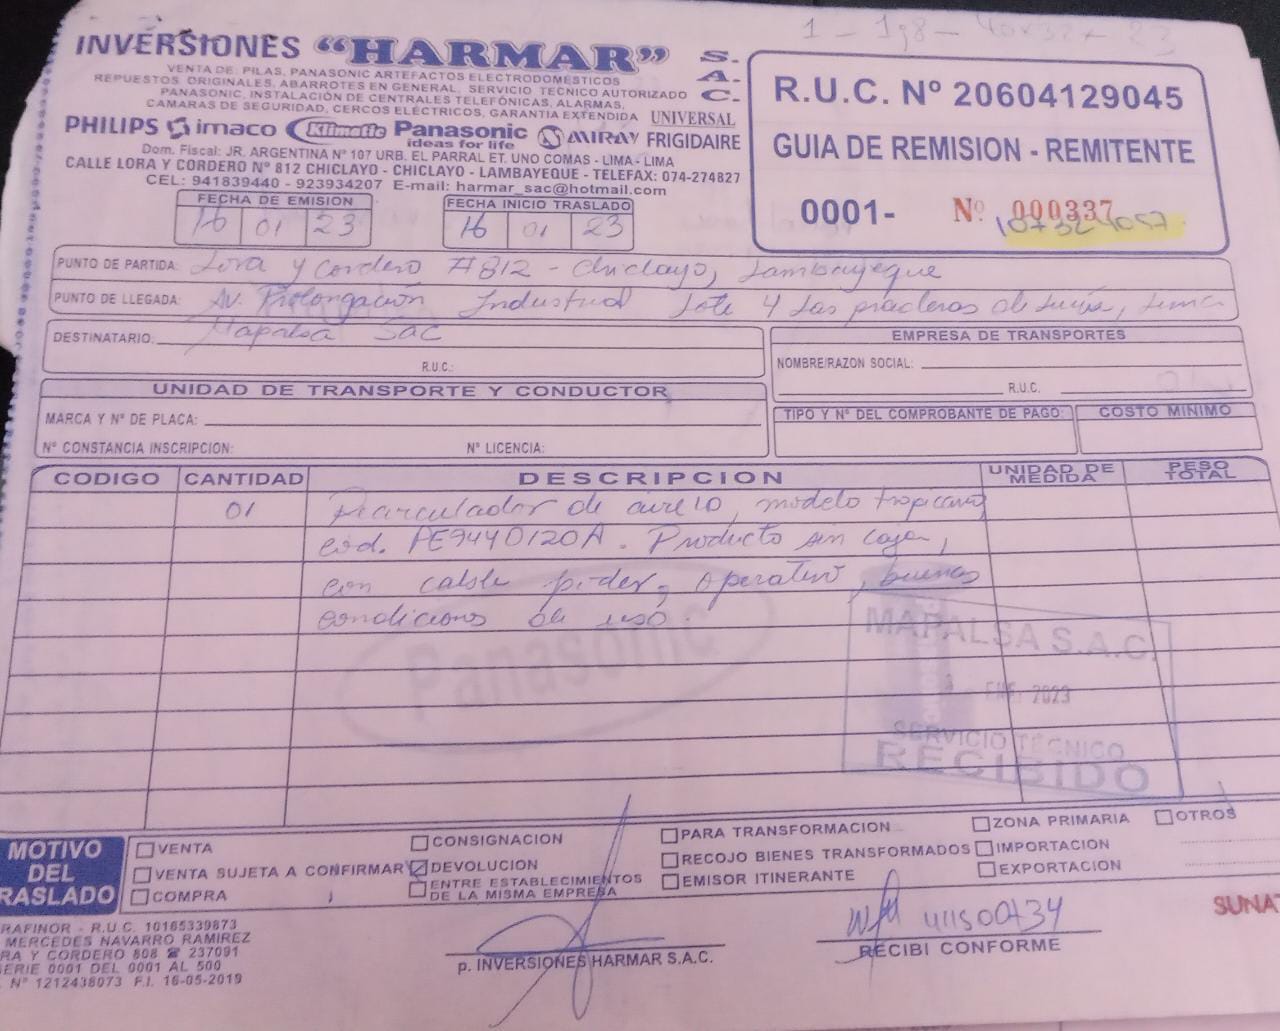 1 - 1,8 - 40x32x23
INVERSIONES "HARMAR" S.A.C.
VENTA DE: PILAS, PANASONIC ARTEFACTOS ELECTRODOMÉSTICOS
REPUESTOS ORIGINALES, ABARROTES EN GENERAL, SERVICIO TECNICO AUTORIZADO
PANASONIC, INSTALACIÓN DE CENTRALES TELEFÓNICAS, ALARMAS,
CAMARAS DE SEGURIDAD, CERCOS ELÉCTRICOS, GARANTIA EXTENDIDA UNIVERSAL
PHILIPS imaco Klimatic Panasonic MIRAY FRIGIDAIRE
ideas for life
Dom. Fiscal: JR. ARGENTINA Nº 107 URB. EL PARRAL ET. UNO COMAS - LIMA - LIMA
CALLE LORA Y CORDERO Nº 812 CHICLAYO - CHICLAYO - LAMBAYEQUE - TELEFAX: 074-274827
CEL: 941839440 - 923934207 E-mail: harmar_sac@hotmail.com
R.U.C. Nº 20604129045
GUIA DE REMISION - REMITENTE
0001- Nº 000337
FECHA DE EMISIÓN
16 01 23
FECHA INICIO TRASLADO
16 01 23
PUNTO DE PARTIDA: Lora y Cordero #812 - Chiclayo, Lambayeque
PUNTO DE LLEGADA: Av. Prolongación Industrial Lote 4 Las praderas de Lurín, Lima
DESTINATARIO: Mapalsa Sac
R.U.C.:
EMPRESA DE TRANSPORTES
NOMBRE/RAZON SOCIAL:
R.U.C.
UNIDAD DE TRANSPORTE Y CONDUCTOR
MARCA Y Nº DE PLACA:
Nº CONSTANCIA INSCRIPCION: Nº LICENCIA:
TIPO Y Nº DEL COMPROBANTE DE PAGO: COSTO MINIMO
CODIGO CANTIDAD DESCRIPCION UNIDAD DE MEDIDA PESO TOTAL
01 Recirculador de aire 10, modelo tropicano,
cod. PE9440120A. Producto sin caja,
con cable poder, operativo, buenas
condiciones de uso.
Panasonic
MAPALSA S.A.C.
ENE. 2023
SERVICIO TECNICO
RECIBIDO
MOTIVO
DEL
RASLADO
VENTA
VENTA SUJETA A CONFIRMAR
COMPRA
CONSIGNACION
DEVOLUCION
ENTRE ESTABLECIMIENTOS
DE LA MISMA EMPRESA
PARA TRANSFORMACION
RECOJO BIENES TRANSFORMADOS
EMISOR ITINERANTE
ZONA PRIMARIA
IMPORTACION
EXPORTACION
OTROS
RAFINOR - R.U.C. 10165339873
MERCEDES NAVARRO RAMIREZ
RA Y CORDERO 808 ☎ 237091
ERIE 0001 DEL 0001 AL 500
Nº 1212438073 F.I. 16-05-2019
p. INVERSIONES HARMAR S.A.C.
41500734
RECIBI CONFORME
SUNAT